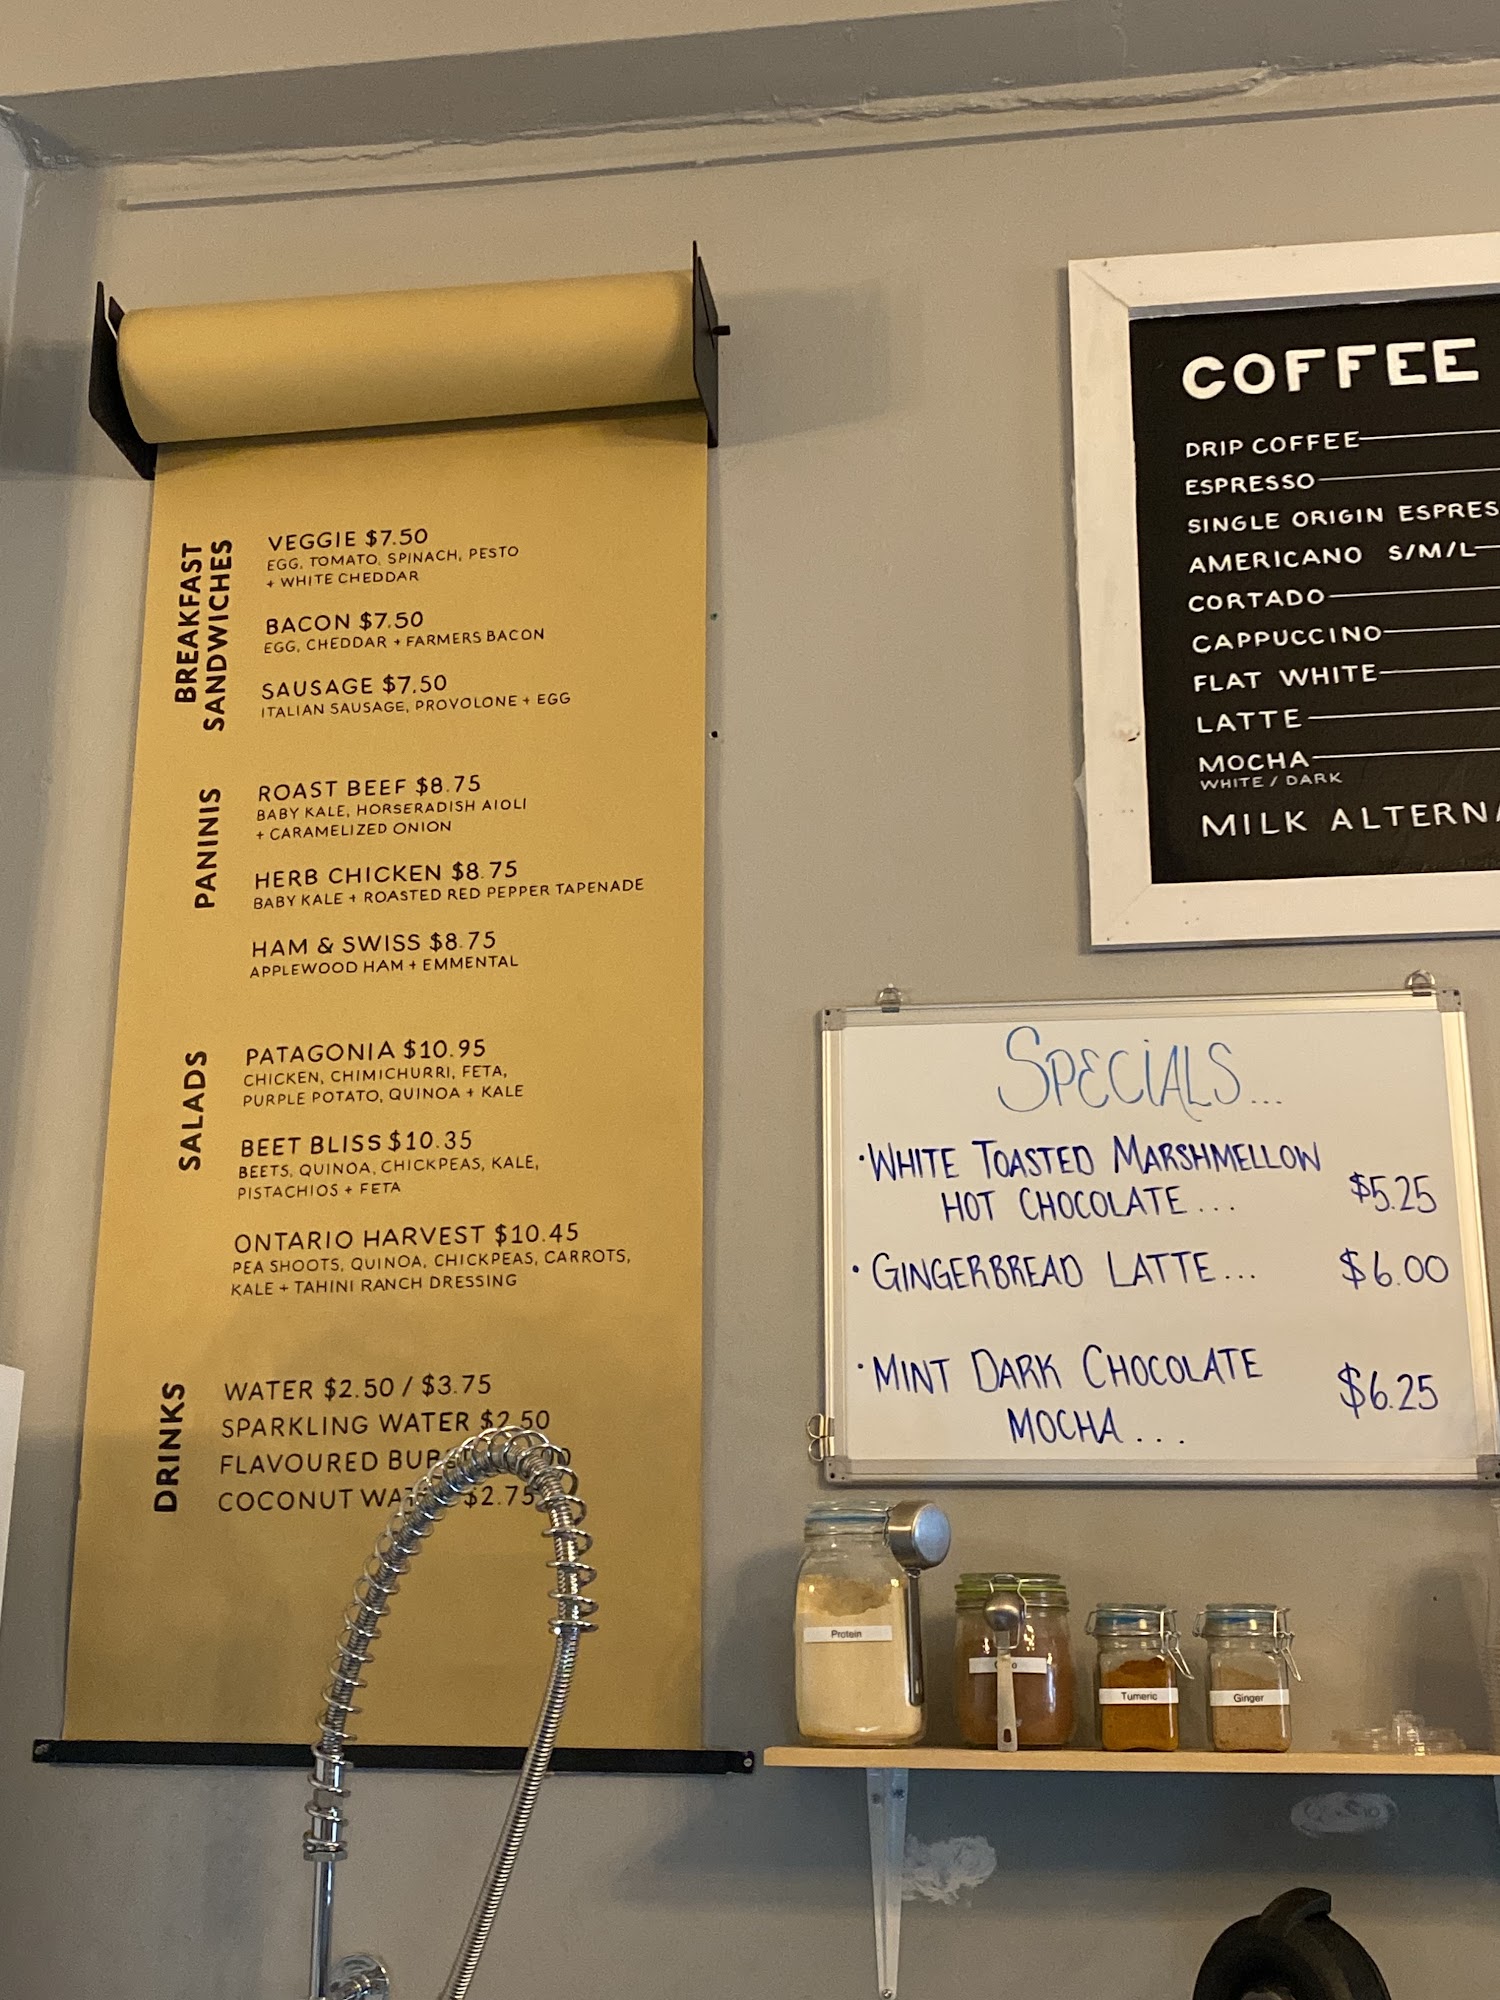 BREAKFAST
SANDWICHES
VEGGIE $7.50
EGG, TOMATO, SPINACH, PESTO
+ WHITE CHEDDAR
BACON $7.50
EGG, CHEDDAR + FARMERS BACON
SAUSAGE $7.50
ITALIAN SAUSAGE, PROVOLONE + EGG
PANINIS
ROAST BEEF $8.75
BABY KALE, HORSERADISH AIOLI
+ CARAMELIZED ONION
HERB CHICKEN $8.75
BABY KALE + ROASTED RED PEPPER TAPENADE
HAM & SWISS $8.75
APPLEWOOD HAM + EMMENTAL
SALADS
PATAGONIA $10.95
CHICKEN, CHIMICHURRI, FETA,
PURPLE POTATO, QUINOA + KALE
BEET BLISS $10.35
BEETS, QUINOA, CHICKPEAS, KALE,
PISTACHIOS + FETA
ONTARIO HARVEST $10.45
PEA SHOOTS, QUINOA, CHICKPEAS, CARROTS,
KALE + TAHINI RANCH DRESSING
DRINKS
WATER $2.50 / $3.75
SPARKLING WATER $2.50
FLAVOURED
COCONUT $2.75
COFFEE
DRIP COFFEE
ESPRESSO
SINGLE ORIGIN ESPRES
AMERICANO S/M/L
CORTADO
CAPPUCCINO
FLAT WHITE
LATTE
MOCHA
WHITE / DARK
MILK ALTERNA
SPECIALS...
• WHITE TOASTED MARSHMELLOW
HOT CHOCOLATE... $5.25
• GINGERBREAD LATTE... $6.00
• MINT DARK CHOCOLATE
MOCHA... $6.25
Protein
Tumeric
Ginger